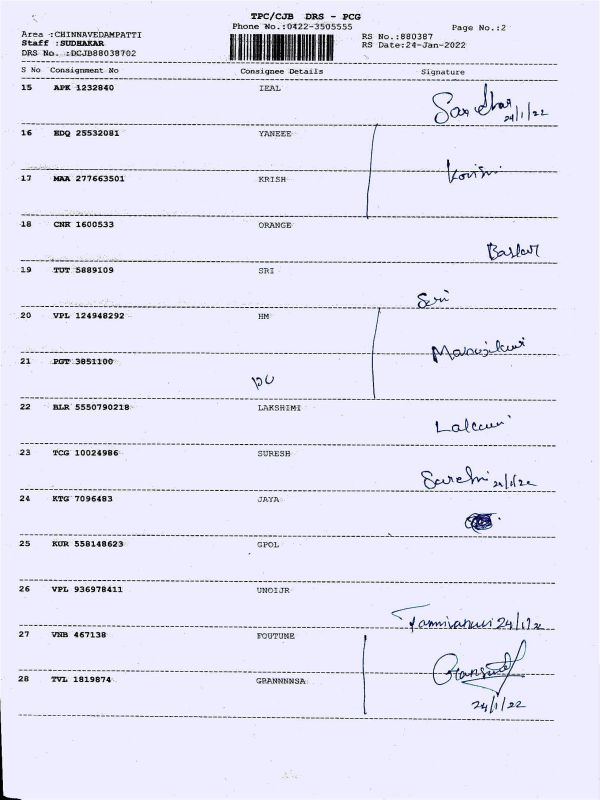 TPC/CJB DRS - PCG
Phone No.:0422-3505555
Page No.:2
Area :CHINNAVEDAMPATTI
RS No.:880387
Staff :SUDHAKAR
RS Date:24-Jan-2022
DRS No. :DCJB88038702
S No Consignment No Consignee Details Signature
15 APK 1232840 IEAL
24/1/22
16 EDQ 25532081 YANEEE
17 MAA 277663501 KRISH
18 CNK 1600533 ORANGE
Baskar
19 TUT 5889109 SRI
Sri
20 VPL 124948292 HM
21 PGT 3851100
22 BLR 5550790218 LAKSHIMI
23 TCG 10024986 SURESH
24/1/22
24 KTG 7096483 JAYA
25 KUR 558148623 GPOL
26 VPL 936978411 UNOIJR
24/1/22
27 VNB 467138 FOUTUNE
28 TVL 1819874 GRANNNNSA
24/1/22